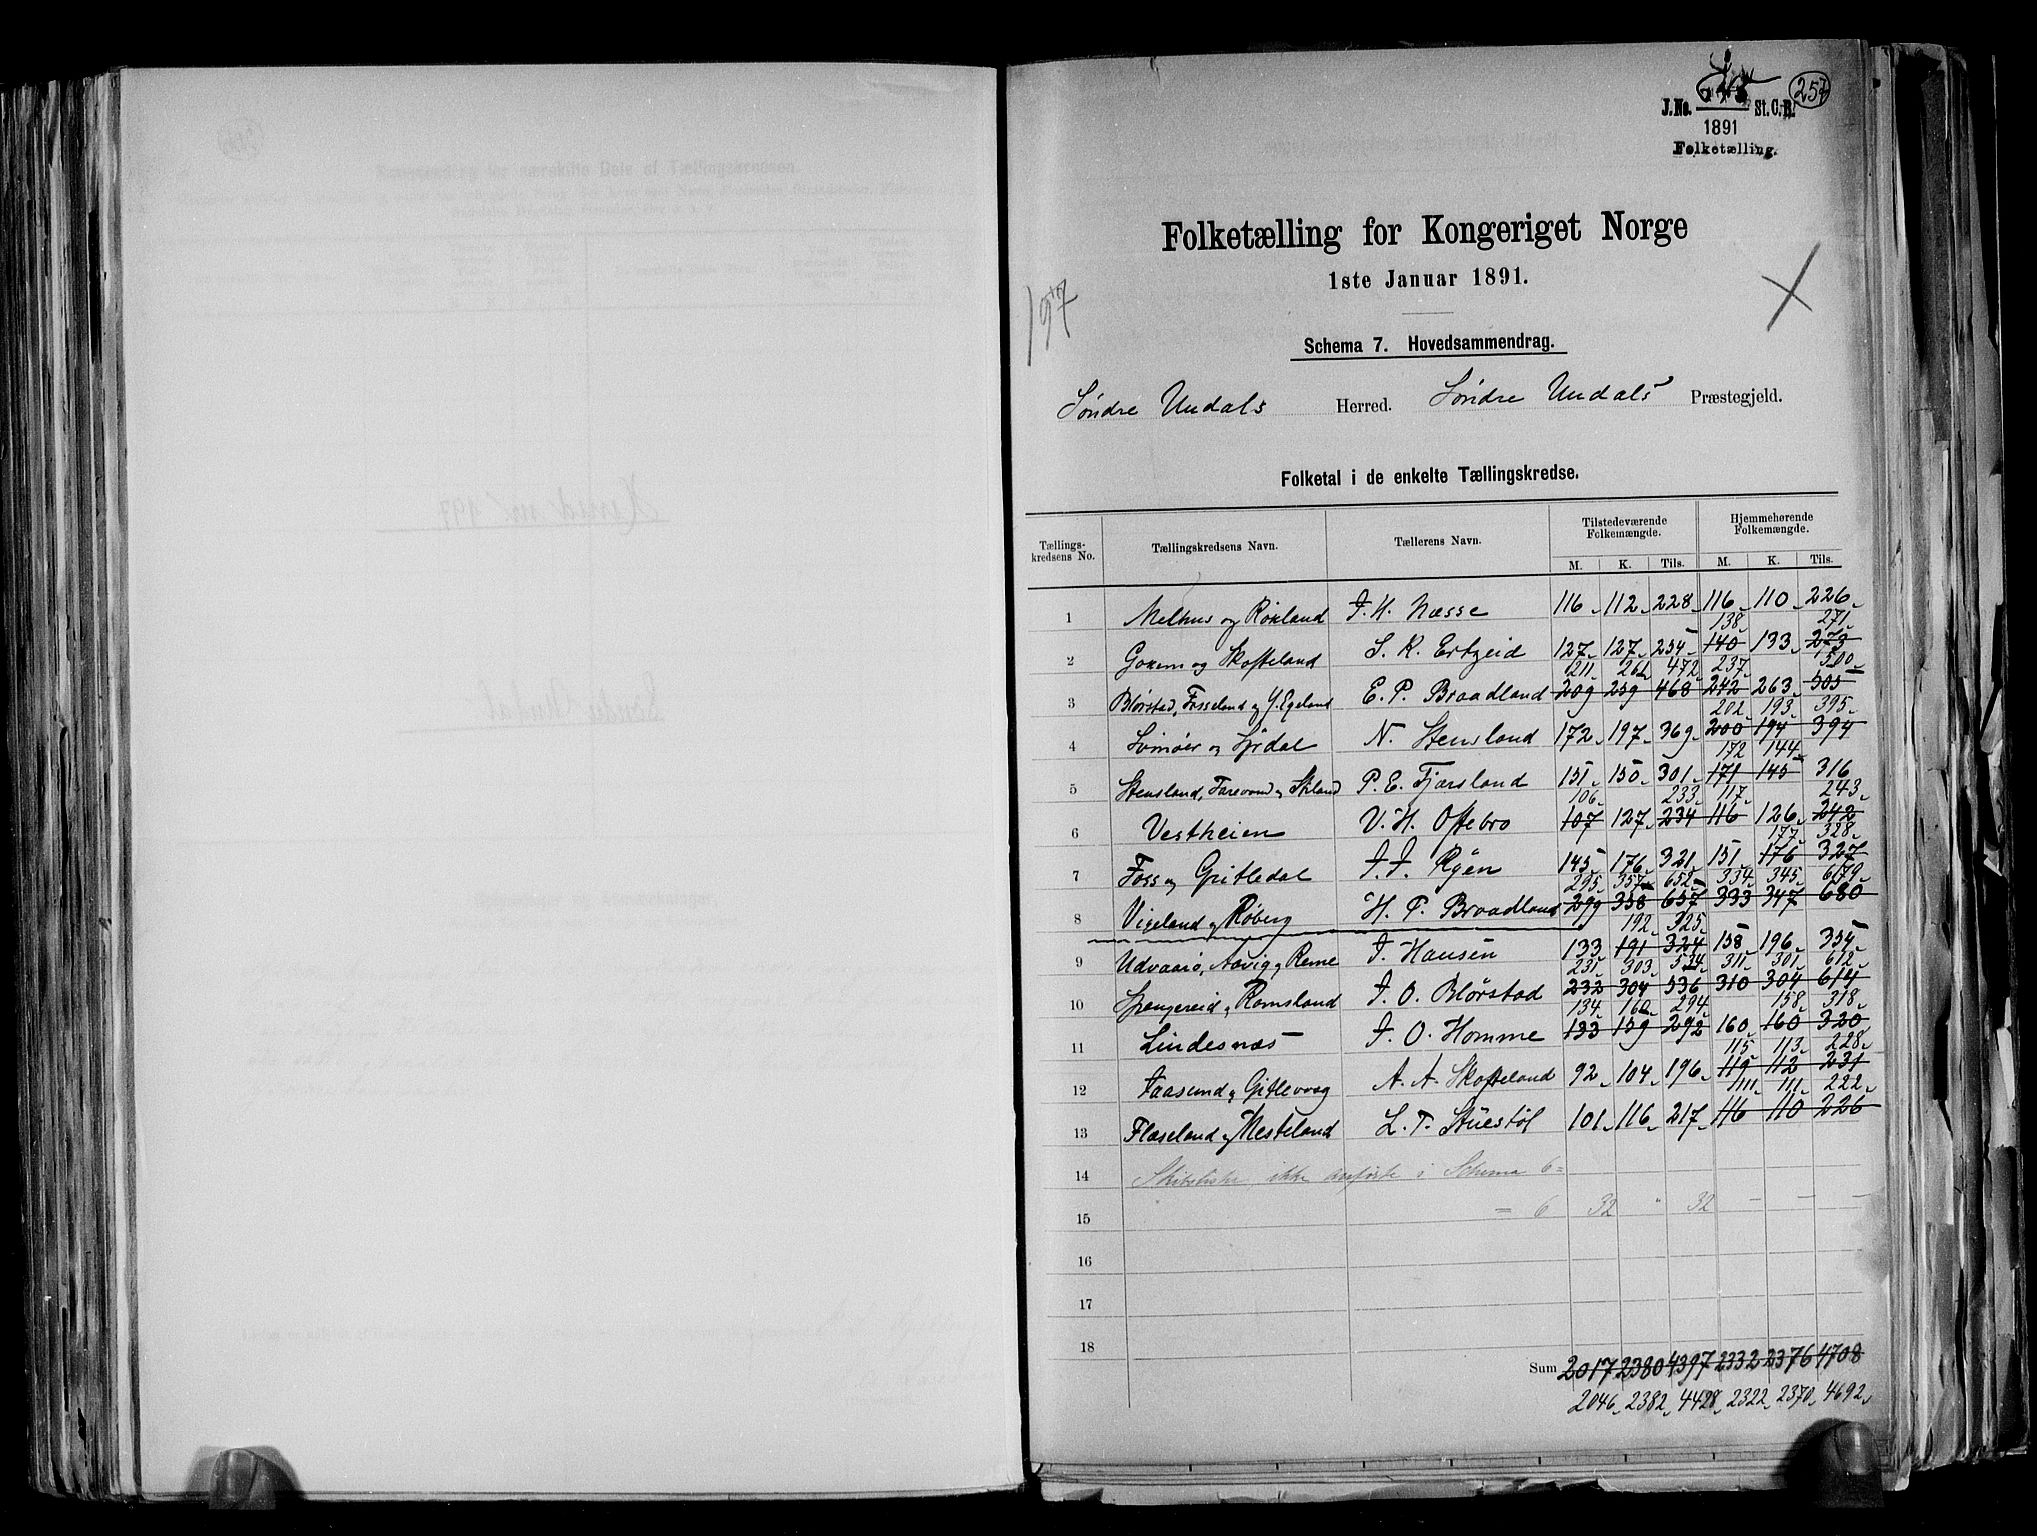 257
J.No. St.C.B.
1891
Folketælling.
Folketælling for Kongeriget Norge
1ste Januar 1891.
197
Schema 7. Hovedsammendrag.
Søndre Undals Herred. Søndre Undals Præstegjeld.
Folketal i de enkelte Tællingskredse.
Tællings-kredsens No. Tællingskredsens Navn. Tællerens Navn. Tilstedeværende Folkemængde. Hjemmehørende Folkemængde.
M. K. Tils. M. K. Tils.
1 Melhus og Røiland J. H. Næsse 116 112 228 116 110 226
138 271
2 Goxem og Skofteland S. K. Ertzeid 127 127 254 140 133 273
211 261 472 237 500
3 Blørstad, Fosseland og Y. Egeland E. P. Braadland 209 259 468 242 263 505
202 193 395
4 Svinøer og Syrdal N. Stensland 172 197 369 200 194 394
172 144
5 Stensland, Farevand og Stiland P. E. Fjærsland 151 150 301 171 145 316
106 233 117 243
6 Vestheien V. H. Oftebro 107 127 234 116 126 242
177 328
7 Foss og Gritledal J. J. Ryen 145 176 321 151 176 327
295 357 652 334 345 679
8 Vigeland og Røberg H. P. Braadland 299 358 657 333 347 680
192 325
9 Udvaarø, Aavig og Reme J. Hansen 133 191 324 158 196 354
231 303 534 311 301 612
10 Spangereid og Ramsland J. O. Blørstad 232 304 536 310 304 614
134 160 294 158 318
11 Lindesnæs J. O. Homme 133 159 292 160 160 320
115 113 228
12 Faasund og Gitlevaag A. A. Skofteland 92 104 196 119 112 231
111 111 222
13 Flaseland og Mesteland L. T. Stuestøl 101 116 217 116 110 226
14 Skibslister, ikke anførte i Schema 6 =
15 = 6 32 " 32 — — —
16
17
18
Sum 2017 2380 4397 2332 2376 4708
2046 2382 4428 2322 2370 4692